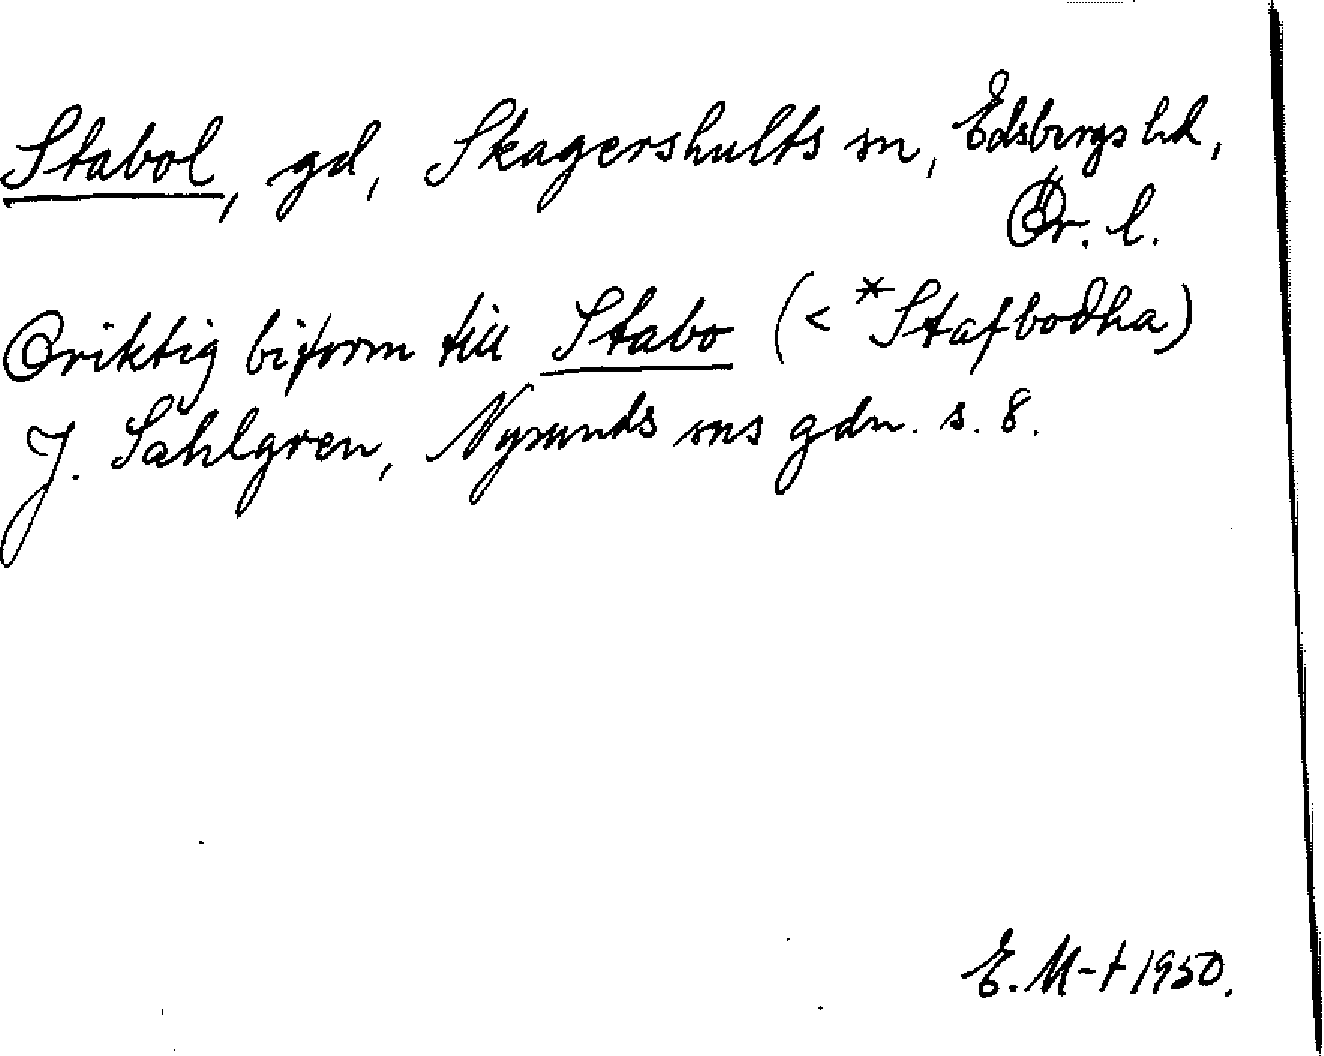 Stabol, gd, Skagershults sn, Edsbergs hd,
Ör. l.
Oriktig biform till Stabo (< *Stafbodha)
J. Sahlgren, Nysunds sns gdn. s. 8.
E. M-t 1950.